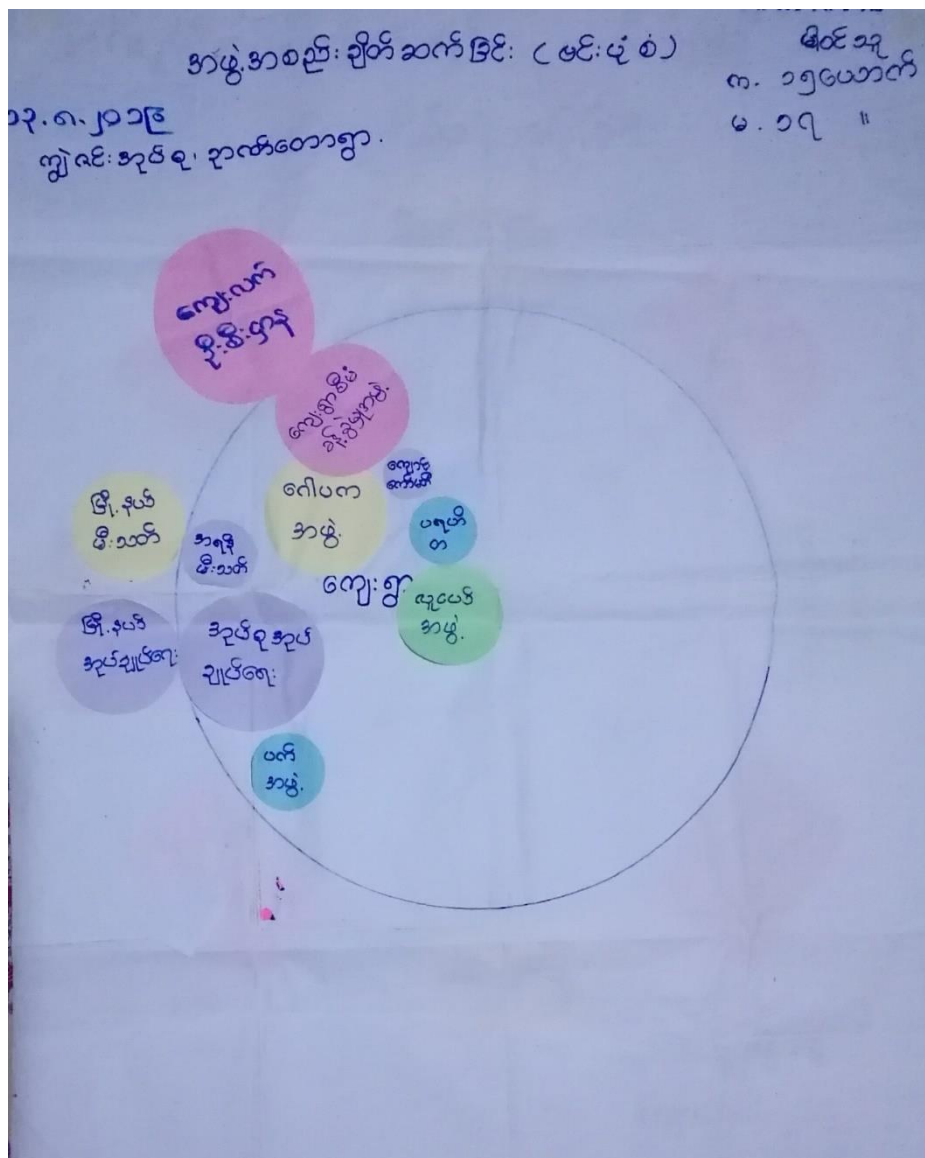 အဖွဲ့အစည်းချိတ်ဆက်ခြင်း (ဗင်းပုံစံ)
ပါဝင်သူ
က. ၁၅ယောက်
မ. ၁၇ "
၁၃.၈.၂၀၁၉
ကျွဲဇင်းအုပ်စု၊ ဉာဏ်တောရွာ.
ကျေးလက်
ဦးစီးဌာန
ကျေးရွာစီမံ
ခန့်ခွဲမှုအဖွဲ့
ကျောင်း
ကော်မတီ
ဂေါပက
အဖွဲ့
ပရဟိ
တ
မြို့နယ်
မီးသတ်
အရန်
မီးသတ်
ကျေးရွာ
လူငယ်
အဖွဲ့
မြို့နယ်
အုပ်ချုပ်ရေး
အုပ်စုအုပ်
ချုပ်ရေး
ပက်
အဖွဲ့